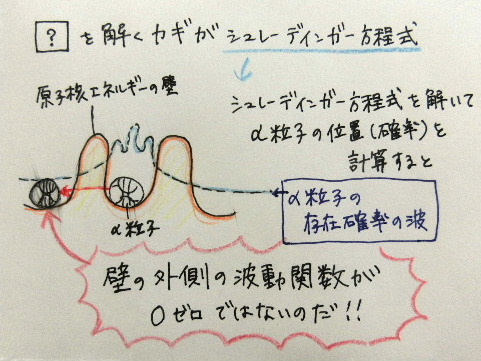 ? を解くカギがシュレーディンガー方程式
原子核エネルギーの壁
シュレーディンガー方程式を解いて
α粒子の位置(確率)を
計算すると
α粒子
α粒子の
存在確率の波
壁の外側の波動関数が
0ゼロではないのだ!!